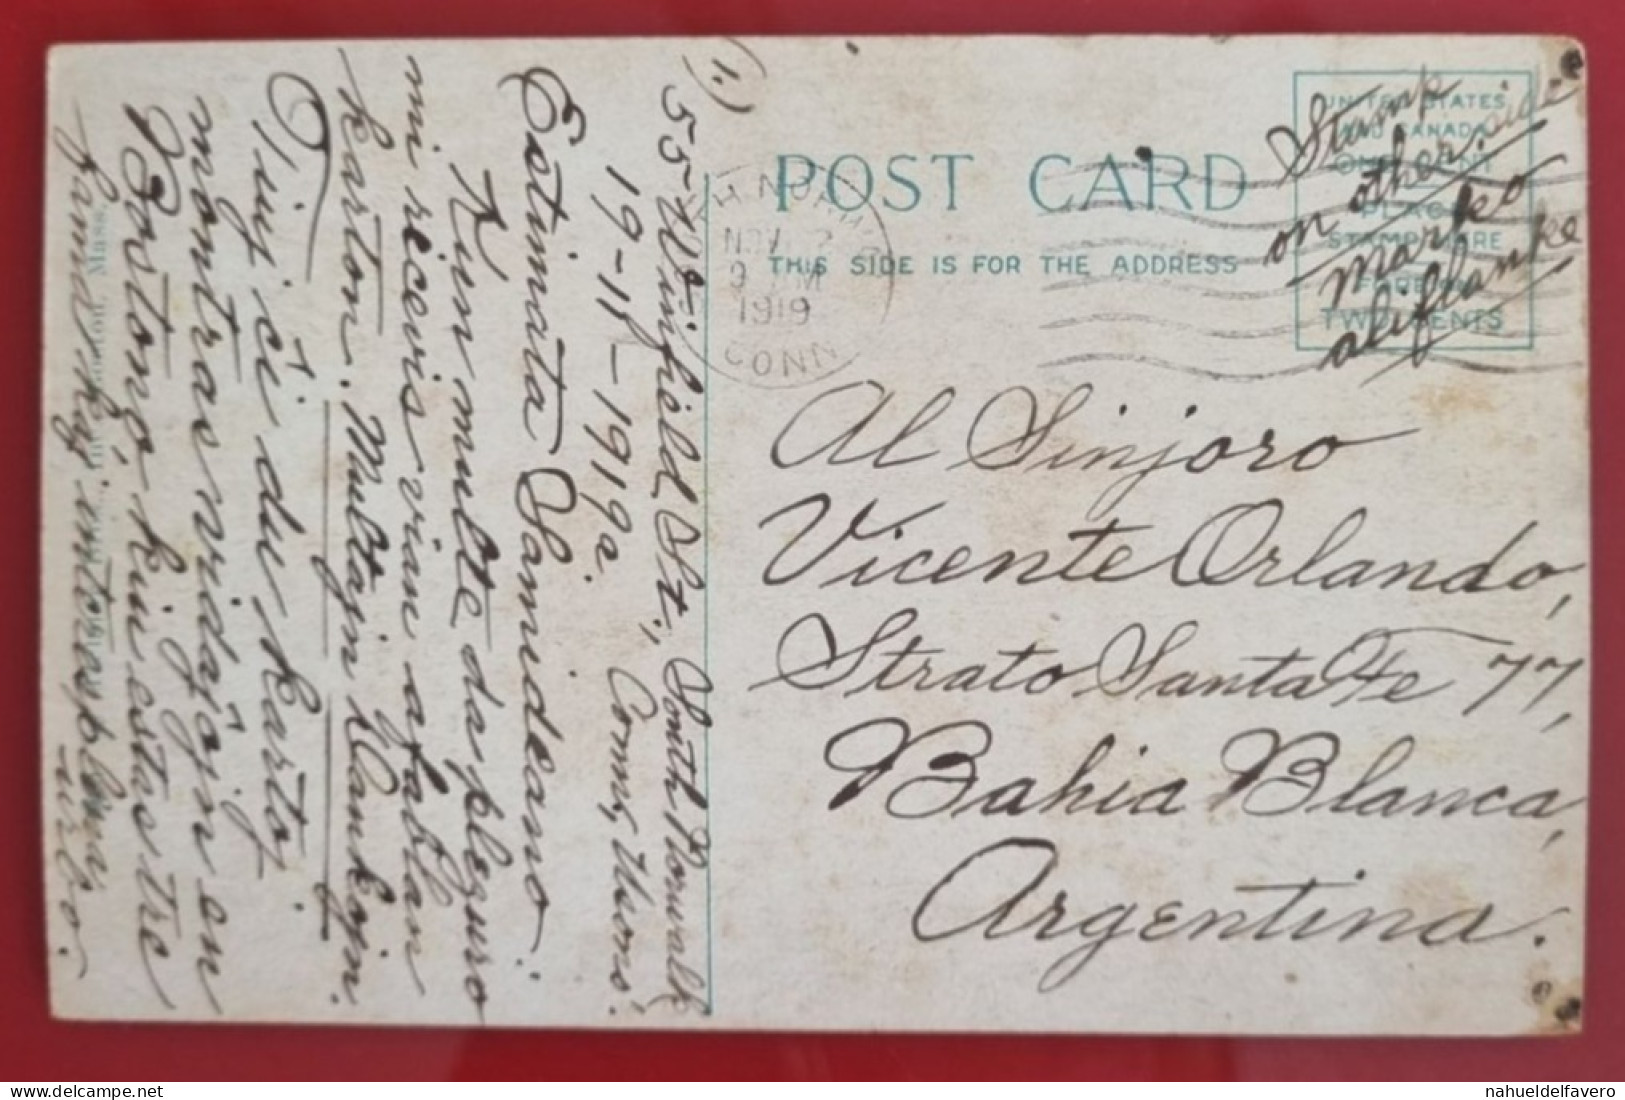 1.)
55 Winfield St., South Norwalk
19-11-1919a. Conn., Usono.
Estimata Samideano:
Kun multe da plezuro
mi ricevis vian afablan
karton. Multajn Dankojn.
Tiuj ĉi du kartoj
montras vidajojn en
Bostono, kiu estas tre
fama kaj interesplena
urbo.
POST CARD
THIS SIDE IS FOR THE ADDRESS
UNITED STATES
AND CANADA
ONE CENT
PLACE
STAMP HERE
FOREIGN
TWO CENTS
Stamp
on other side
Marko
aliflanke
NORW
NOV 2
9 AM
1919
CONN
Al Sinjoro
Vicente Orlando,
Strato Santa Fe 77,
Bahia Blanca,
Argentina.
Boston, Mass.
nahueldelfavero